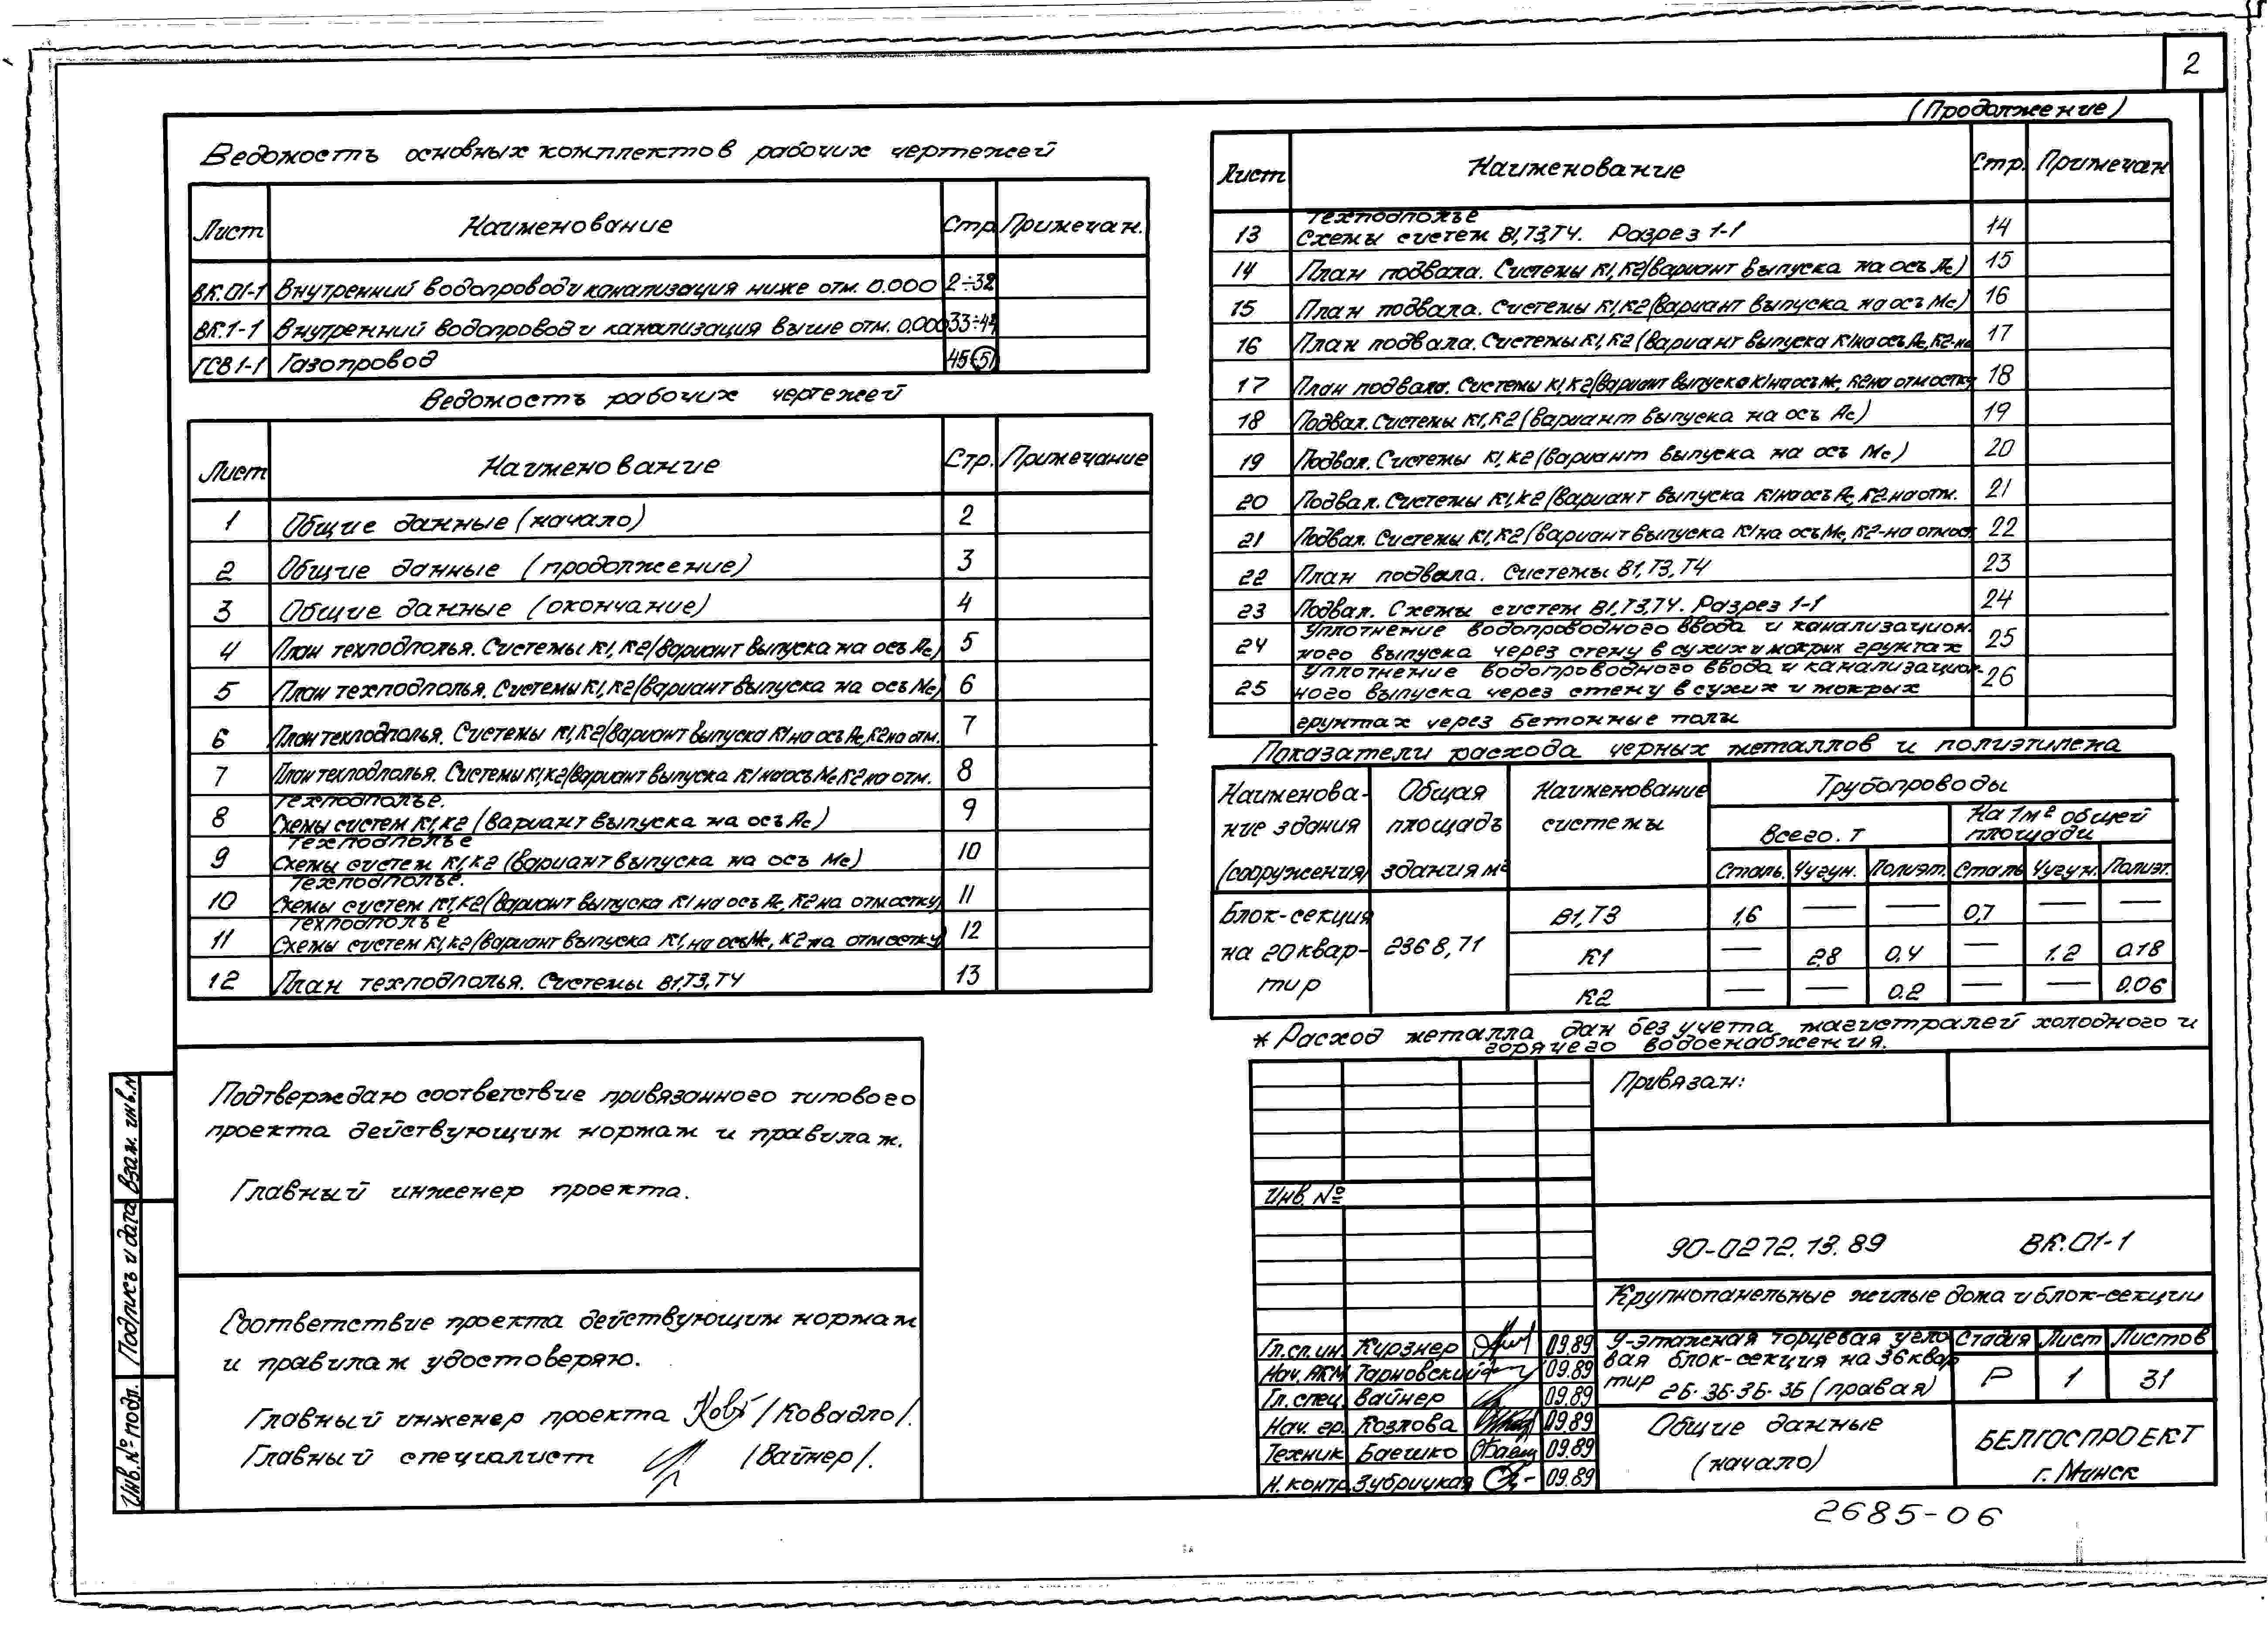 2
Ведомость основных комплектов рабочих чертежей
Лист Наименование Стр. Примечан.
ВК.01-1 Внутренний водопровод и канализация ниже отм. 0.000 2÷32
ВК.1-1 Внутренний водопровод и канализация выше отм. 0.000 33÷44
ГСВ 1-1 Газопровод 45÷51
Ведомость рабочих чертежей
Лист Наименование Стр. Примечание
1 Общие данные (начало) 2
2 Общие данные (продолжение) 3
3 Общие данные (окончание) 4
4 План техподполья. Системы К1, К2 (вариант выпуска на ось Ас) 5
5 План техподполья. Системы К1, К2 (вариант выпуска на ось Мс) 6
6 План техподполья. Системы К1, К2 (вариант выпуска К1 на ось Ас, К2 на отм. 7
7 План техподполья. Системы К1, К2 (вариант выпуска К1 на ось Мс К2 на отм. 8
Техподполье.
8 Схемы систем К1, К2 (вариант выпуска на ось Ас) 9
Техподполье
9 Схемы систем К1, К2 (вариант выпуска на ось Мс) 10
Техподполье.
10 Схемы систем К1, К2 (вариант выпуска К1 на ось Ас, К2 на отмостку) 11
Техподполье
11 Схемы систем К1, К2 (вариант выпуска К1, на ось Мс, К2 на отмостку) 12
12 План техподполья. Системы В1, Т3, Т4 13
(Продолжение)
Лист Наименование Стр. Примечан
Техподполье
13 Схемы систем В1, Т3, Т4. Разрез 1-1 14
14 План подвала. Системы К1, К2 (вариант выпуска на ось Ас) 15
15 План подвала. Системы К1, К2 (вариант выпуска на ось Мс) 16
16 План подвала. Системы К1, К2 (вариант выпуска К1 на ось Ас, К2-на 17
17 План подвала. Системы К1, К2 (вариант выпуска К1 на ось Мс, К2 на отмостку 18
18 Подвал. Системы К1, К2 (вариант выпуска на ось Ас) 19
19 Подвал. Системы К1, К2 (вариант выпуска на ось Мс) 20
20 Подвал. Системы К1, К2 (вариант выпуска К1 на ось Ас, К2 на отм. 21
21 Подвал. Системы К1, К2 (вариант выпуска К1 на ось Мс, К2-на отмост. 22
22 План подвала. Системы В1, Т3, Т4 23
23 Подвал. Схемы систем В1, Т3, Т4. Разрез 1-1 24
Уплотнение водопроводного ввода и канализацион-
24 ного выпуска через стену в сухих и мокрых грунтах 25
Уплотнение водопроводного ввода и канализацион-
25 ного выпуска через стену в сухих и мокрых 26
грунтах через бетонные полы
Показатели расхода черных металлов и полиэтилена
Наименова- Общая Наименование Трубопроводы
ние здания площадь системы Всего. т На 1м² общей площади
(сооружения) здания м² Сталь. Чугун. Полиэт. Сталь Чугун. Полиэт.
Блок-секция В1, Т3 1,6 — — 0,7 — —
на 20 квар- 2368,71 К1 — 2,8 0,4 — 1.2 0.18
тир К2 — — 0.2 — — 0.06
* Расход металла дан без учета магистралей холодного и
горячего водоснабжения.
Подтверждаю соответствие привязанного типового
проекта действующим нормам и правилам.
Главный инженер проекта.
Соответствие проекта действующим нормам
и правилам удостоверяю.
Главный инженер проекта /Ковадло/.
Главный специалист /Вайнер/.
Взам. инв. №
Подпись и дата
Инв. № подл.
Привязан:
Инв. №
90-0272.13.89 ВК.01-1
Крупнопанельные жилые дома и блок-секции
Гл.сп.ин. Курзнер 09.89
Нач. АКМ Тарновский 09.89
Гл. спец. Вайнер 09.89
Нач. гр. Козлова 09.89
Техник Баешко 09.89
Н. контр. Зубрицкая 09.89
9-этажная торцевая угло
вая блок-секция на 36 квар
тир 2Б-3Б-3Б-3Б (правая)
Стадия Лист Листов
Р 1 31
Общие данные
(начало)
БЕЛГОСПРОЕКТ
г. Минск
2685-06